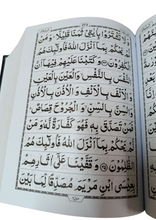 تَشْتَرُوْا بِاٰيٰتِيْ ثَمَنًا قَلِيْلًا ؕ وَمَنْ
لَّمْ يَحْكُمْ بِمَاۤ اَنْزَلَ اللّٰهُ فَاُولٰٓئِكَ هُمُ
الْكٰفِرُوْنَ وَكَتَبْنَا عَلَيْهِمْ فِيْهَاۤ اَنَّ
النَّفْسَ بِالنَّفْسِ وَالْعَيْنَ بِالْعَيْنِ
وَالْاَنْفَ بِالْاَنْفِ وَالْاُذُنَ بِالْاُذُنِ
وَالسِّنَّ بِالسِّنِّ وَالْجُرُوْحَ قِصَاصٌ
فَمَنْ تَصَدَّقَ بِهٖ فَهُوَ كَفَّارَةٌ لَّهٗ وَمَنْ
لَّمْ يَحْكُمْ بِمَاۤ اَنْزَلَ اللّٰهُ فَاُولٰٓئِكَ هُمُ
الظّٰلِمُوْنَ وَقَفَّيْنَا عَلٰۤى اٰثَارِهِمْ
بِعِيْسَى ابْنِ مَرْيَمَ مُصَدِّقًا لِّمَا بَيْنَ